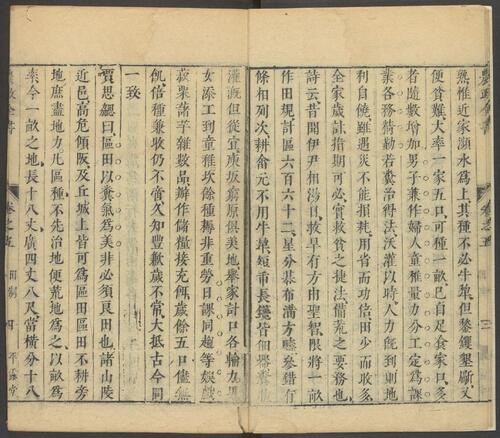 熟惟近家瀕水爲上其種不必牛犂但鏊钁墾劚又
便貧難大率一家五口可種一畝已自足食家口多
者隨數增加男子兼作婦人童稚量力分工定爲課
業各務精勤若糞治得法沃灌以時人力旣到則地
利自饒雖遇災不能損耗用省而功倍田少而收多
全家歲計指期可必實救貧之捷法備荒之要務也
詩云昔聞伊尹相湯日救旱有方由聖智限將一畝
作田規計區六百六十二星分棊布滿方疇參錯有
條相列次耕畬元不用牛犂短甫長鑱皆佃器
灌漑但從宜庚坎窮原俱美地舉家計口各輸力男
女添工到童稚坎餘種耨非重勞日課同趨等娛戲
菽粟諸芋雜數品辦作儲糧接充餽歲餘五口儘無
飢倍種兼收仍不啻久知豐歉歲不常大抵古今同
一致
賈思勰曰區田以糞氣爲美非必須良田也諸山陵
近邑高危傾阪及丘城上皆可爲區田區田不耕旁
地庶盡地力凡區種不先治地便荒地爲之以畝爲
率今一畝之地長十八丈廣四丈八尺當橫分十八
卷之五
田制
四
平露堂